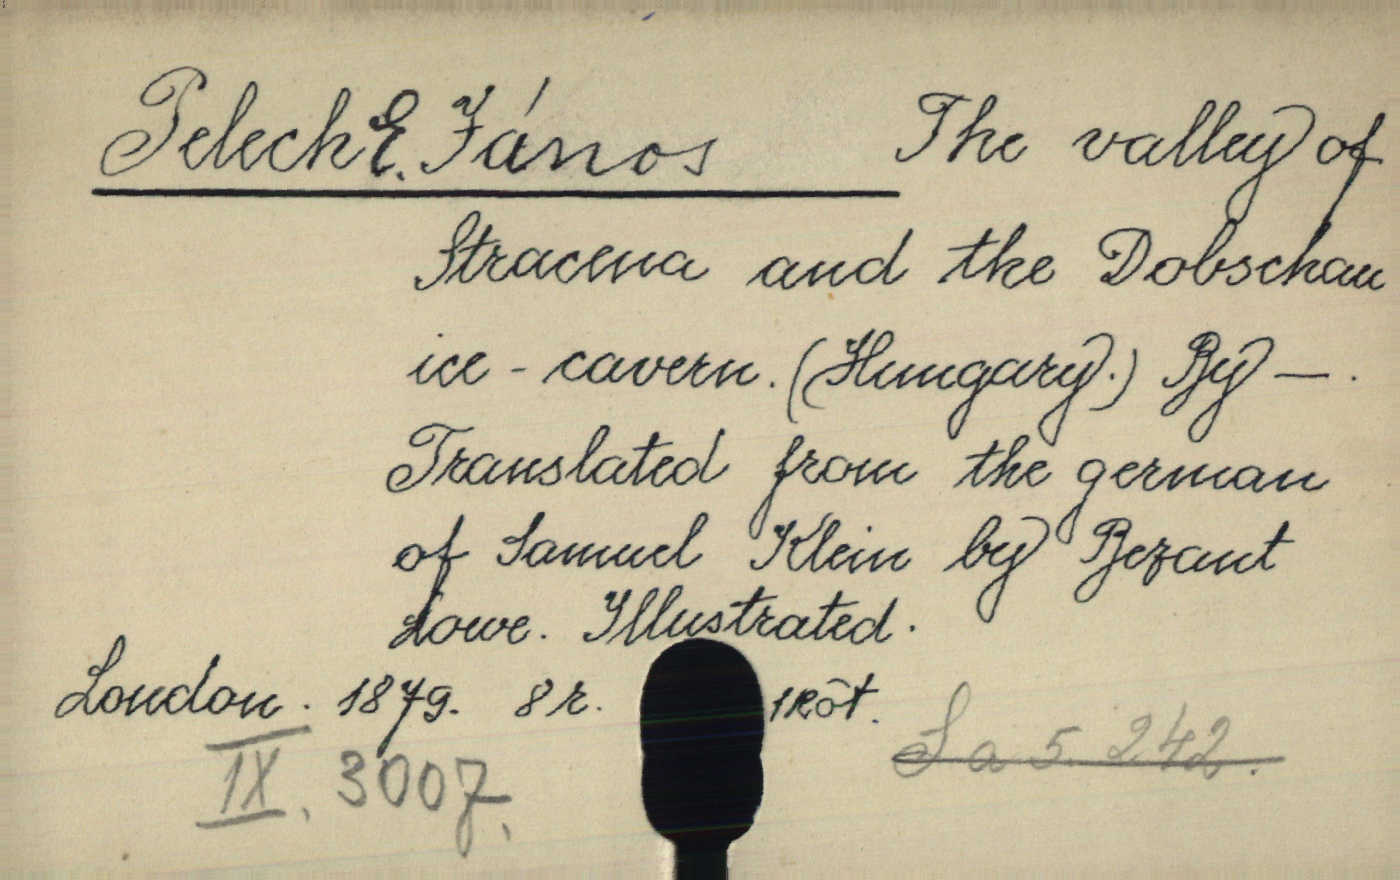 Pelech E. János The valley of
Stracena and the Dobschau
ice-cavern. (Hungary.) By —.
Translated from the german
of Samuel Klein by Bezant
Lowe. Illustrated.
London. 1879. 8r. 1 köt.
S a 5. 242.
IX. 3007.